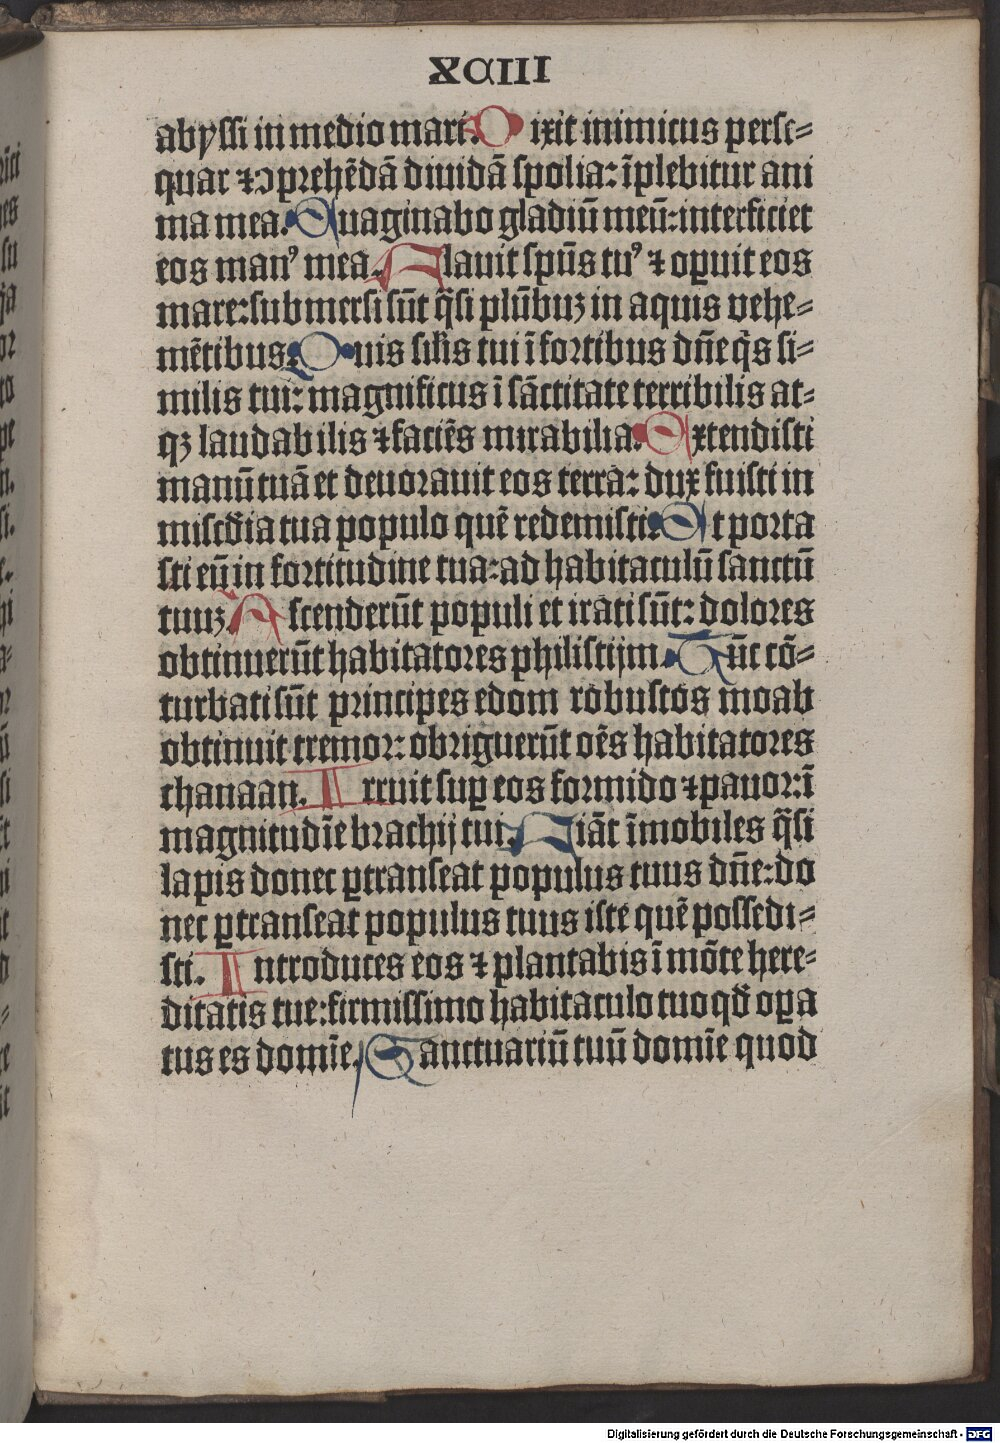 XCIII
abyssi in medio mari. Dixit inimicus perse⸗
quar ⁊ ↄprehẽdã diuidã spolia: ĩplebitur ani
ma mea. Euaginabo gladiũ meũ: interficiet
eos manꝰ mea. Flauit spũs tuꝰ ⁊ opuit eos
mare: submersi sũt q̃si plũbuʒ in aquis vehe⸗
mẽtibus. Quis silis tui ĩ fortibus dñe q̃s si⸗
milis tui: magnificus ĩ sãctitate terribilis at⸗
qʒ laudabilis ⁊ faciẽs mirabilia. Extendisti
manũ tuã et deuorauit eos terra: dux fuisti in
miscd̃ia tua populo quẽ redemisti. Et porta
sti eũ in fortitudine tua: ad habitaculũ sanctũ
tuuʒ. Ascenderũt populi et irati sũt: dolores
obtinuerũt habitatores philistijm. Tũc cõ⸗
turbati sũt principes edom robustos moab
obtinuit tremor: obriguerũt oẽs habitatores
chanaan. Irruit suꝑ eos formido ⁊ pauor: ĩ
magnitudĩe brachij tui. Fiãt ĩmobiles q̃si
lapis donec ꝑtranseat populus tuus dñe: do
nec ꝑtranseat populus tuus iste quẽ possedi⸗
sti. Introduces eos ⁊ plantabis ĩ mõte here⸗
ditatis tue: firmissimo habitaculo tuo qd̃ oꝑa
tus es domĩe. Sanctuariũ tuũ domĩe quod
Digitalisierung gefördert durch die Deutsche Forschungsgemeinschaft - DFG